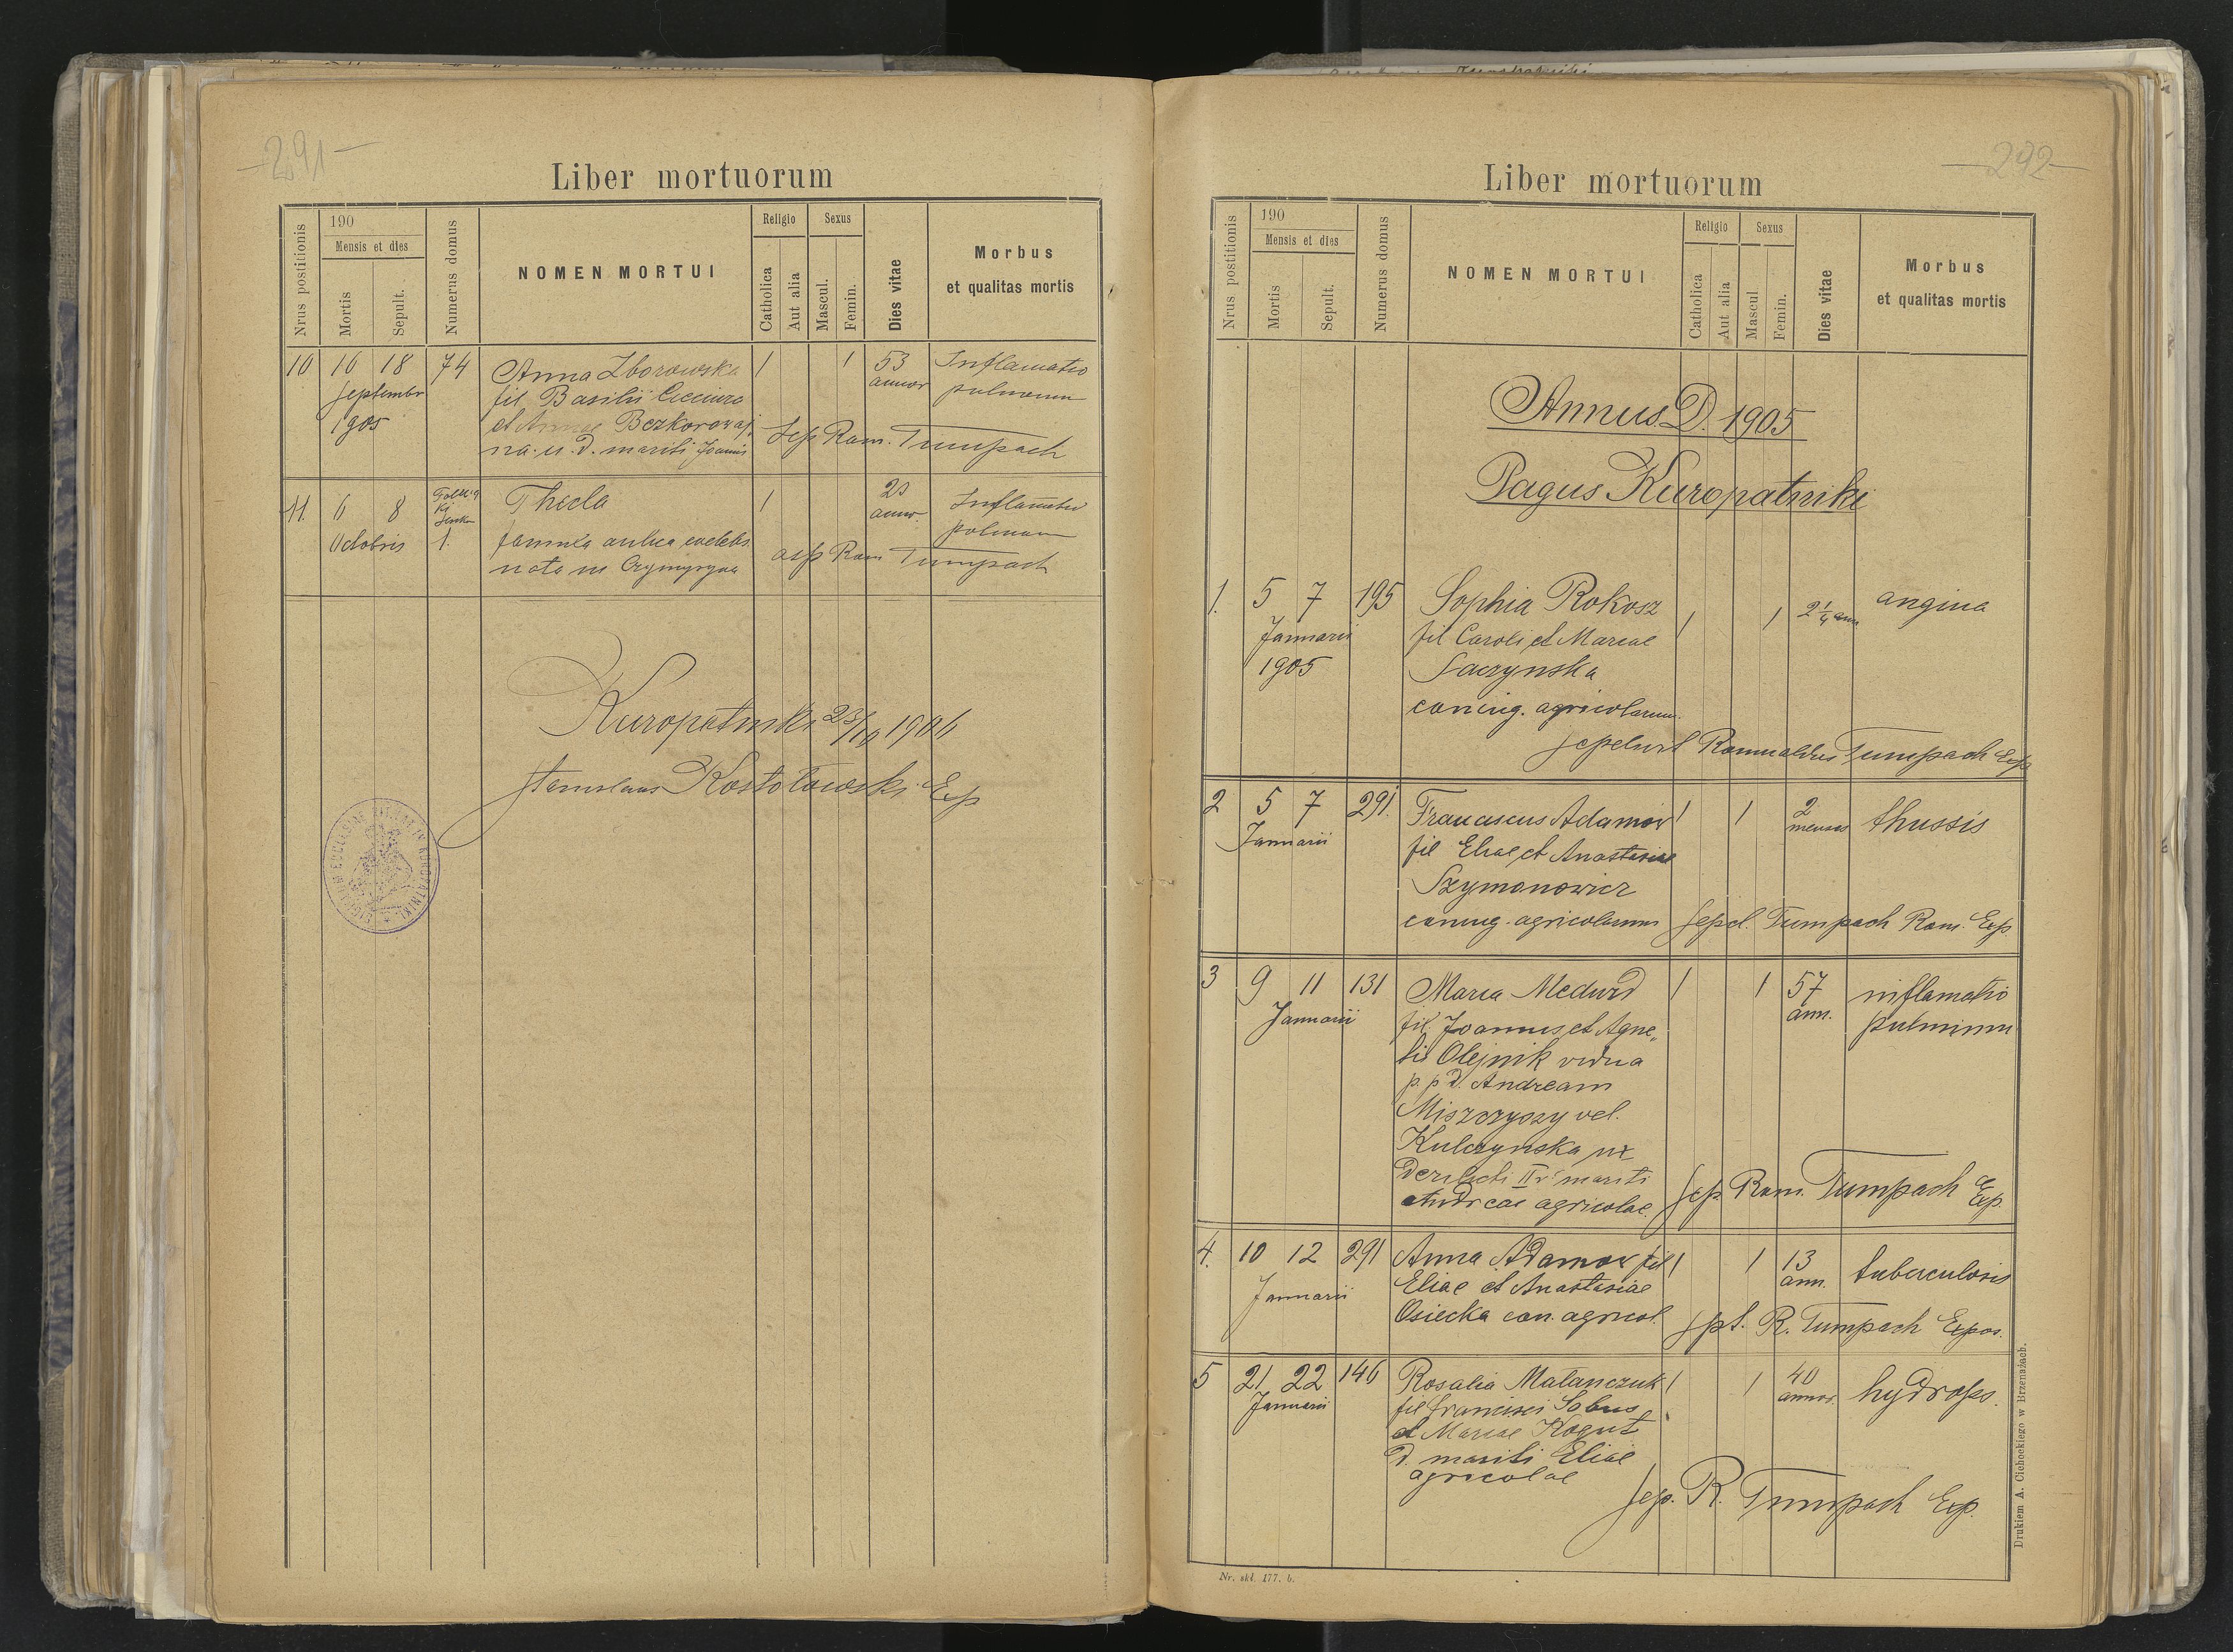 -291-
Liber mortuorum
Nrus postitionis
190
Mensis et dies
Mortis
Sepult.
Numerus domus
NOMEN MORTUI
Religio
Catholica
Aut alia
Sexus
Mascul.
Femin.
Dies vitae
Morbus
et qualitas mortis
10 16 18 74 Anna Zborowska 1 1 53 Inflamatio
Septembr fil Basilii annor pulmonum
1905 et Annae Bezkorowaj
na. u. d. mariti Joannis Sep Rom. Tumpach
11. 6 8 Thecla 1 annor. Inflamatio
Octobris 1. famula aulica pulmonum
nata in Rom Tumpach
Kuropatniki 23/10 1906
Stanislaus Kostołowski Exp
-292-
Liber mortuorum
Nrus postitionis
190
Mensis et dies
Mortis
Sepult.
Numerus domus
NOMEN MORTUI
Religio
Catholica
Aut alia
Sexus
Mascul
Femin.
Dies vitae
Morbus
et qualitas mortis
Annus D. 1905
Pagus Kuropatniki
1. 5 7 195 Sophia Rokosz 1 1 2 1/4 ann angina
Januarii fil Caroli et Mariae
1905 Saczynska
coniug. agricolarum.
sepelivit Romualdus Tumpach Exp
2 5 7 291. Franciscus Adamow 1 1 2 menses thussis
Januarii fil Eliae et Anastasiae
Szymonowicz
coniug. agricolarum Sepel. Tumpach Rom. Exp
3 9 11 131 Maria Medwid 1 1 57 ann. inflamatio
Januarii fil. Joannis et Agne„ pulminum
tis Olejnik vidua
p. p d. Andream
Miszczyszy vel.
Kulczynska
IIv mariti
Andreae agricolae. Sep Rom. Tumpach Exp.
4. 10 12 291 Anna Adamow fil 1 1 13 ann. tuberculosis
Januarii Eliae et Anastasiae
Osiecka con. agricol. spt. R. Tumpach Expos.
5 21 22 146 Rosalia Matanczuk 1 1 40 annor. hydrops.
Januarii fil Francisci Sobus
et Mariae Kogut
d. mariti Eliae
agricolae
Sep. R. Tumpach Exp.
Nr. skł. 177. b.
Drukiem A. Cichockiego w Brzeżanach.